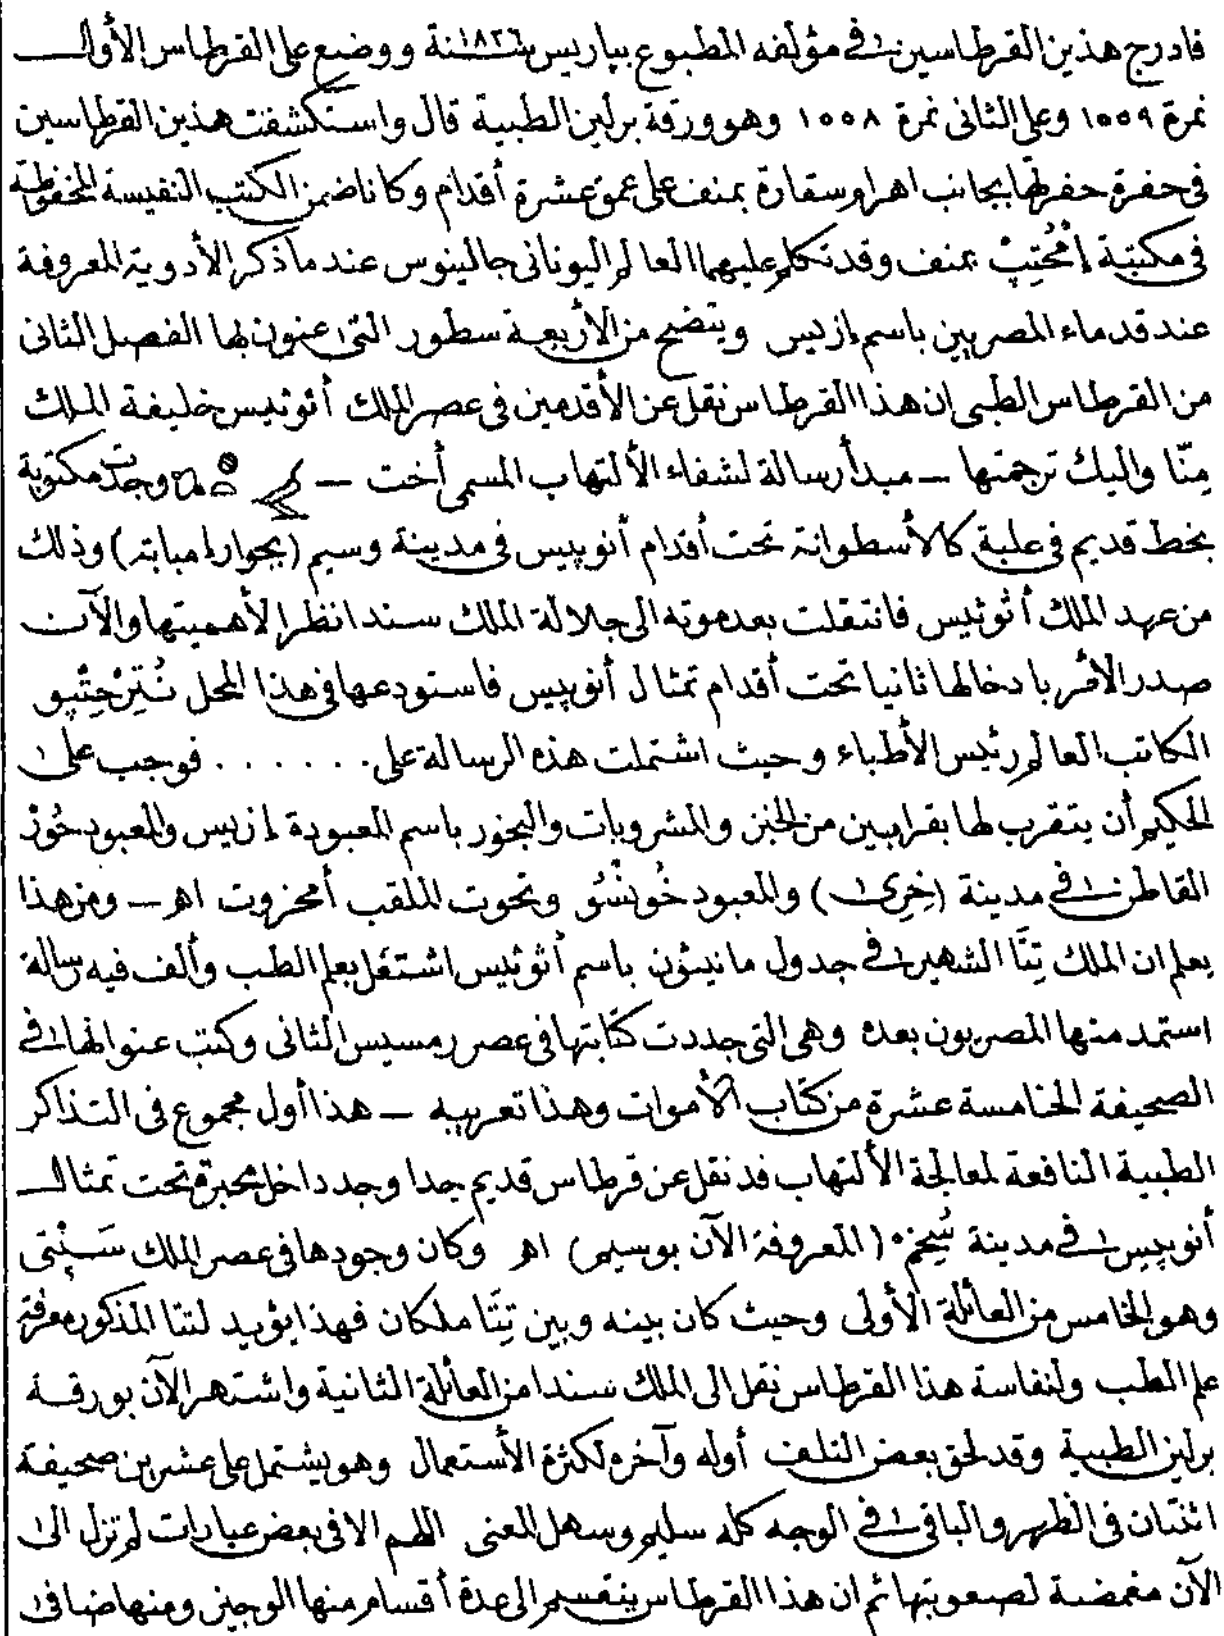 فادرج هذين القرطاسين فى مؤلفه المطبوع بباريس سنة ١٨٢٦ ووضع على القرطاس الأول
نمرة ١٥٥٩ وعلى الثانى نمرة ١٥٥٨ وهو ورقة برلين الطبية قال واستكشفت هذين القرطاسين
فى حفرة حفرتها بجانب اهرام سقارة بمنف على عمق عشرة أقدام وكانا ضمن الكتب النفيسة المحفوظة
فى مكتبة إمْحُتِبْ بمنف وقد تكلم عليهما العالم اليونانى جالينوس عند ما ذكر الأدوية المعروفة
عند قدماء المصريين باسم إزيس ويتضح من الاربعة سطور التى عنون بها الفصل الثانى
من القرطاس الطبى ان هذا القرطاس نقل عن الأقدمين فى عصر الملك أثوثيس خليفة الملك
مِنّا واليك ترجمتها — مبدأ رسالة لشفاء الألتهاب المسمى أخت — وجدت مكتوبة
بخط قديم فى علبة كالأسطوانة تحت أقدام أنوبيس فى مدينة وسيم (بجوار إمبابة) وذلك
من عهد الملك أثوثيس فانتقلت بعد موته الى جلالة الملك سندا نظرا لأهميتها والآن
صدر الأمر بادخالها ثانيا تحت أقدام تمثال أنوبيس فاستودعها فى هذا المحل نُتِرْحِتْبو
الكاتب العالم رئيس الأطباء وحيث اشتملت هذه الرسالة على . . . . . . فوجب على
الحكيم أن يتقرب لها بقرابين من الخبز والمشروبات والبخور باسم المعبودة إزيس والمعبود حُورْ
القاطن فى مدينة (خِرِى) والمعبود خُونْسُو وتحوت الملقب أمخروت اهـ — ومن هذا
يعلم ان الملك تِتَّا الشهير فى جدول مانيثون باسم أثوثيس اشتغل بعلم الطب وألف فيه رسالة
استمد منها المصريون بعده وهى التى جددت كتابتها فى عصر رمسيس الثانى وكتب عنوانها فى
الصحيفة الخامسة عشرة من كتاب الأموات وهذا تعريبه — هذا أول مجموع فى التذاكر
الطبية النافعة لمعالجة الألتهاب قد نقل عن قرطاس قديم جدا وجد داخل محبرة تحت تمثال
أنوبيس فى مدينة سُخِمْ (المعروفة الآن بوسيم) اهـ وكان وجودها فى عصر الملك سَبْتِى
وهو الخامس من العائلة الأولى وحيث كان بينه وبين تِتَّا ملكان فهذا يؤيد لتتا المذكور معرفة
علم الطب ولنفاسة هذا القرطاس نقل الى الملك سندا من العائلة الثانية واشتهر الآن بورقة
برلين الطبية وقد لحق بعض التلف أوله وآخره لكثرة الأستعمال وهو يشتمل على عشرين صحيفة
اثنتان فى الظهر والباقى فى الوجه كله سليم وسهل المعنى اللهم الا فى بعض عبارات لم تزل الى
الآن مغمضة لصعوبتها ثم ان هذا القرطاس ينقسم الى عدة أقسام منها الوجيز ومنها ضافى